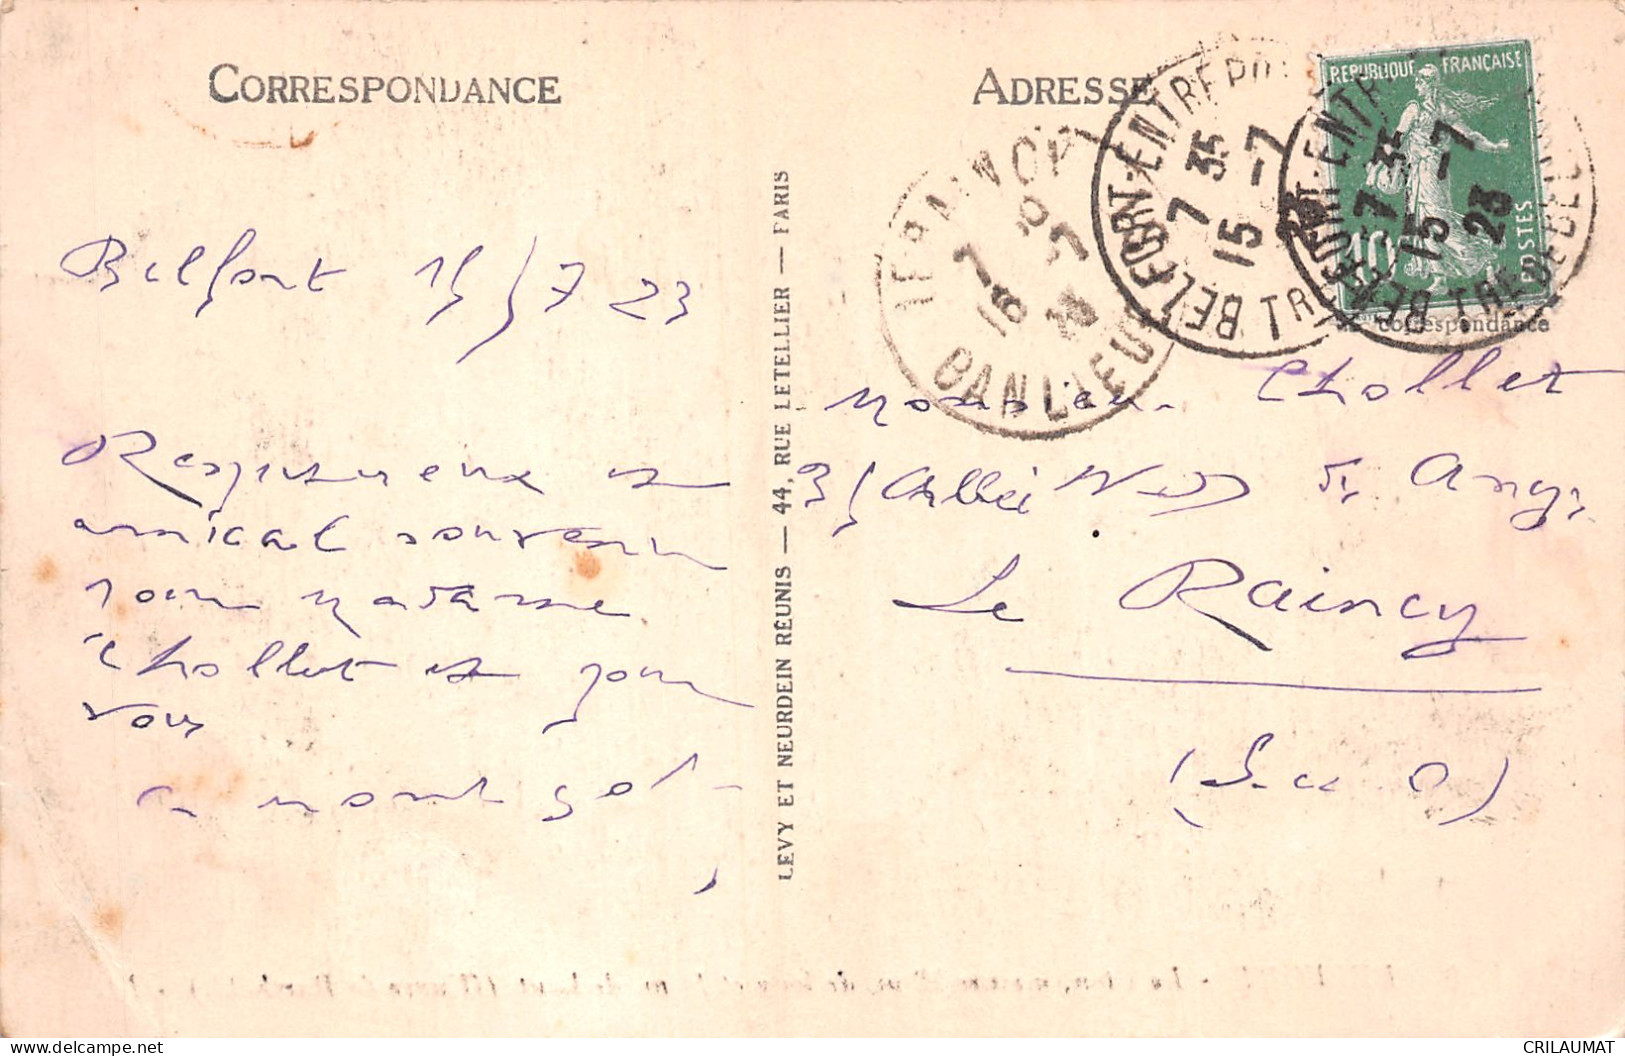 CORRESPONDANCE
Belfort 15/7 23
Respectueux et
amical souvenir
pour Madame
Chollet et pour
vous
LEVY ET NEURDEIN RÉUNIS — 44, RUE LETELLIER — PARIS
ADRESSE
LE RAINCY
BANLIEUE
BELFORT-ENTREPOT
7 35
15 -7
23
BELFORT-ENTREPOT
7 35
15 -7
23
REPUBLIQUE FRANÇAISE
10
POSTES
correspondance
Monsieur Chollet
3/ Allée N. D. des Anges
Le Raincy
(S. et O)
CRILAUMAT